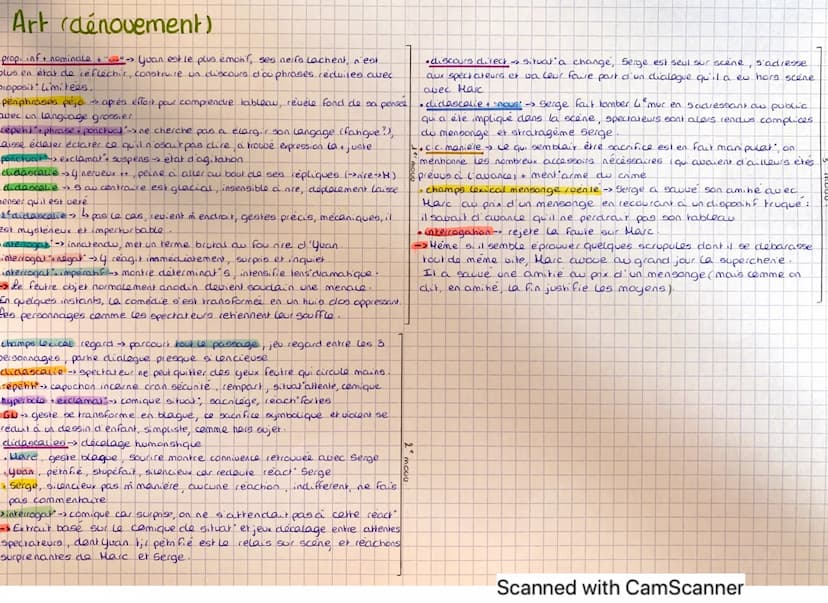 Art (dénouement)
prop. inf + nominale + "..." → Yvan est le plus émotif, ses nerfs lachent, n'est
plus en état de réfléchir, construire un discours d'où phrases réduites avec
proposit° limitées.
périphrases péjo → après effort pour comprendre tableau, révèle fond de sa pensée
avec un language grossier
répétit° + phrase + ponctuat° → ne cherche pas à élargir son langage (fatigue?),
laisse éclater ce qu'il n'osait pas dire, a trouvé expression la + juste
ponctuat° → exclamat° + suspens → état d'agitation
didascalie → Y nerveux ++, peine à aller au bout de ses répliques (→ rire → H)
didascalie → S au contraire est glacial, insensible à rire, déplacement laisse
penser qu'il est vexé
didascalie → pas le cas, revient m̂ endroit, gestes précis, mécaniques, il
est mystérieux et imperturbable.
interrogat° → innatendu, met un terme brutal au fou rire d'Yvan.
interrogat° + négat° → Y réagit immédiatement, surpris et inquiet.
interrogat° + impératif → montre déterminat° S, intensifie tens° dramatique.
→ Le feutre objet normalement anodin devient soudain une menace.
En quelques instants, la comédie s'est transformée en un huis clos oppressant.
Les personnages comme les spectateurs retiennent leur souffle.
1er mouv
champs lexical regard → parcourt tout le passage, jeu regard entre les 3
personnages, partie dialogue presque silencieuse
didascalie → spectateur ne peut quitter des yeux feutre qui circule mains.
répétit° → capuchon incarne cran sécurité, rempart, situat° attente, comique
hyperbole + exclamat° → comique situat°, sacrilège, réact° fortes
GN → geste se transforme en blague, ce sacrifice symbolique et violent se
réduit à un dessin d'enfant, simpliste, comme hors sujet.
didascalies → décalage humoristique
. Marc, geste blague, sourire montre connivence retrouvée avec Serge
. Yvan, pétrifié, stupéfait, silencieux car redoute réact° Serge
. Serge, silencieux pas m̂ manière, aucune réaction, indifférent, ne fais
pas commentaire
interrogat° → comique car surprise, on ne s'attendait pas à cette réact°
→ Extrait basé sur le comique de situat° et jeux décalage entre attentes
spectateurs, dont Yvan tjr pétrifié est le relais sur scène, et réactions
surprenantes de Marc et Serge.
2e mouv
. discours direct → situat° a changé, Serge est seul sur scène, s'adresse
aux spectateurs et va leur faire part d'un dialogue qu'il a eu hors scène
avec Marc
. didascalie + "nous" → Serge fait tomber 4e mur en s'adressant au public
qui a été impliqué dans la scène, spectateurs sont alors rendus complices
du mensonge et stratagème Serge.
. c.c. manière → ce qui semblait être sacrifice est en fait manipulat°, on
mentionne les nombreux accessoires nécessaires (qui avaient d'ailleurs étés
prévus à l'avance) + ment° arme du crime
. champs lexical mensonge vérité → Serge a sauvé son amitié avec
Marc au prix d'un mensonge en recourant à un dispositif truqué :
il savait d'avance qu'il ne perdrait pas son tableau
. interrogation → rejete la faute sur Marc.
→ Même si il semble éprouver quelques scrupules dont il se débarasse
tout de même vite, Marc avoue au grand jour la supercherie.
Il a sauvé une amitié au prix d'un mensonge (mais comme on
dit, en amitié, la fin justifie les moyens).
3e mouv
Scanned with CamScanner